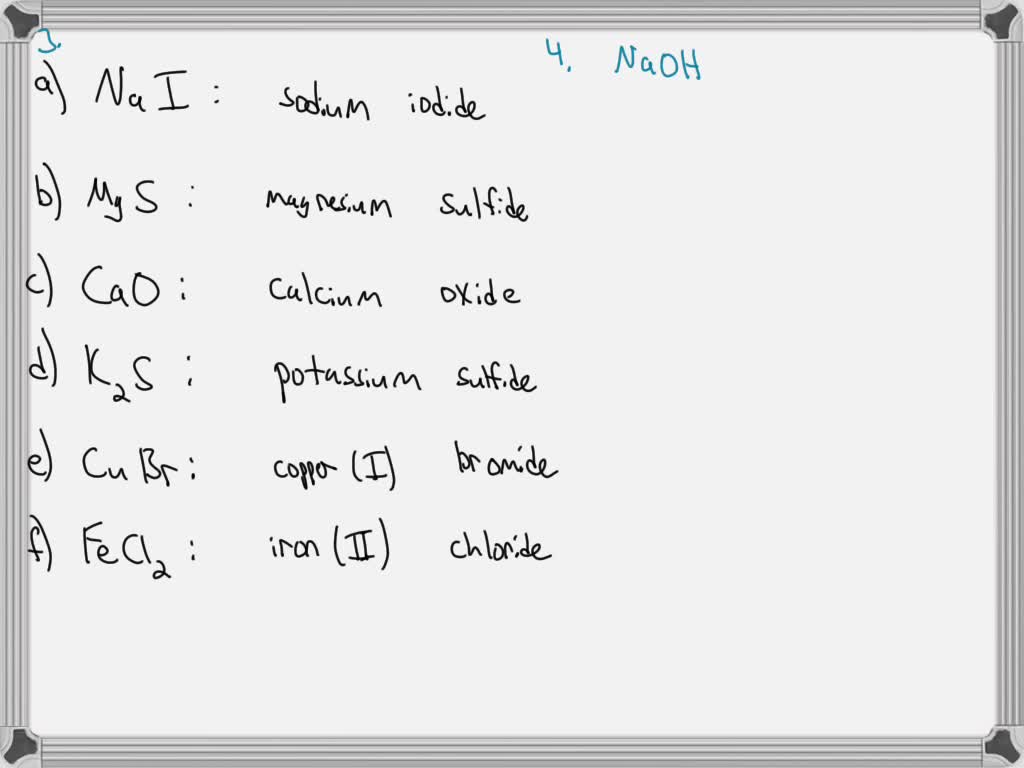 3.
a) NaI : sodium iodide
b) MgS : magnesium sulfide
c) CaO : calcium oxide
d) K₂S : potassium sulfide
e) CuBr : copper (I) bromide
f) FeCl₂ : iron (II) chloride
4. NaOH